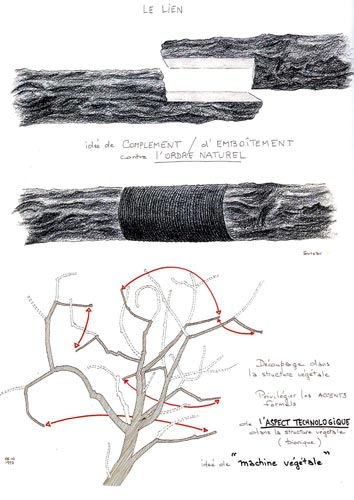 LE LIEN
idée de COMPLEMENT / d'EMBOÎTEMENT
contre L'ORDRE NATUREL
Découpage dans
la structure végétale
Privilégier les ACCENTS
formels
de L'ASPECT TECHNOLOGIQUE
dans la structure végétale
(bionique)
idée de "machine végétale"